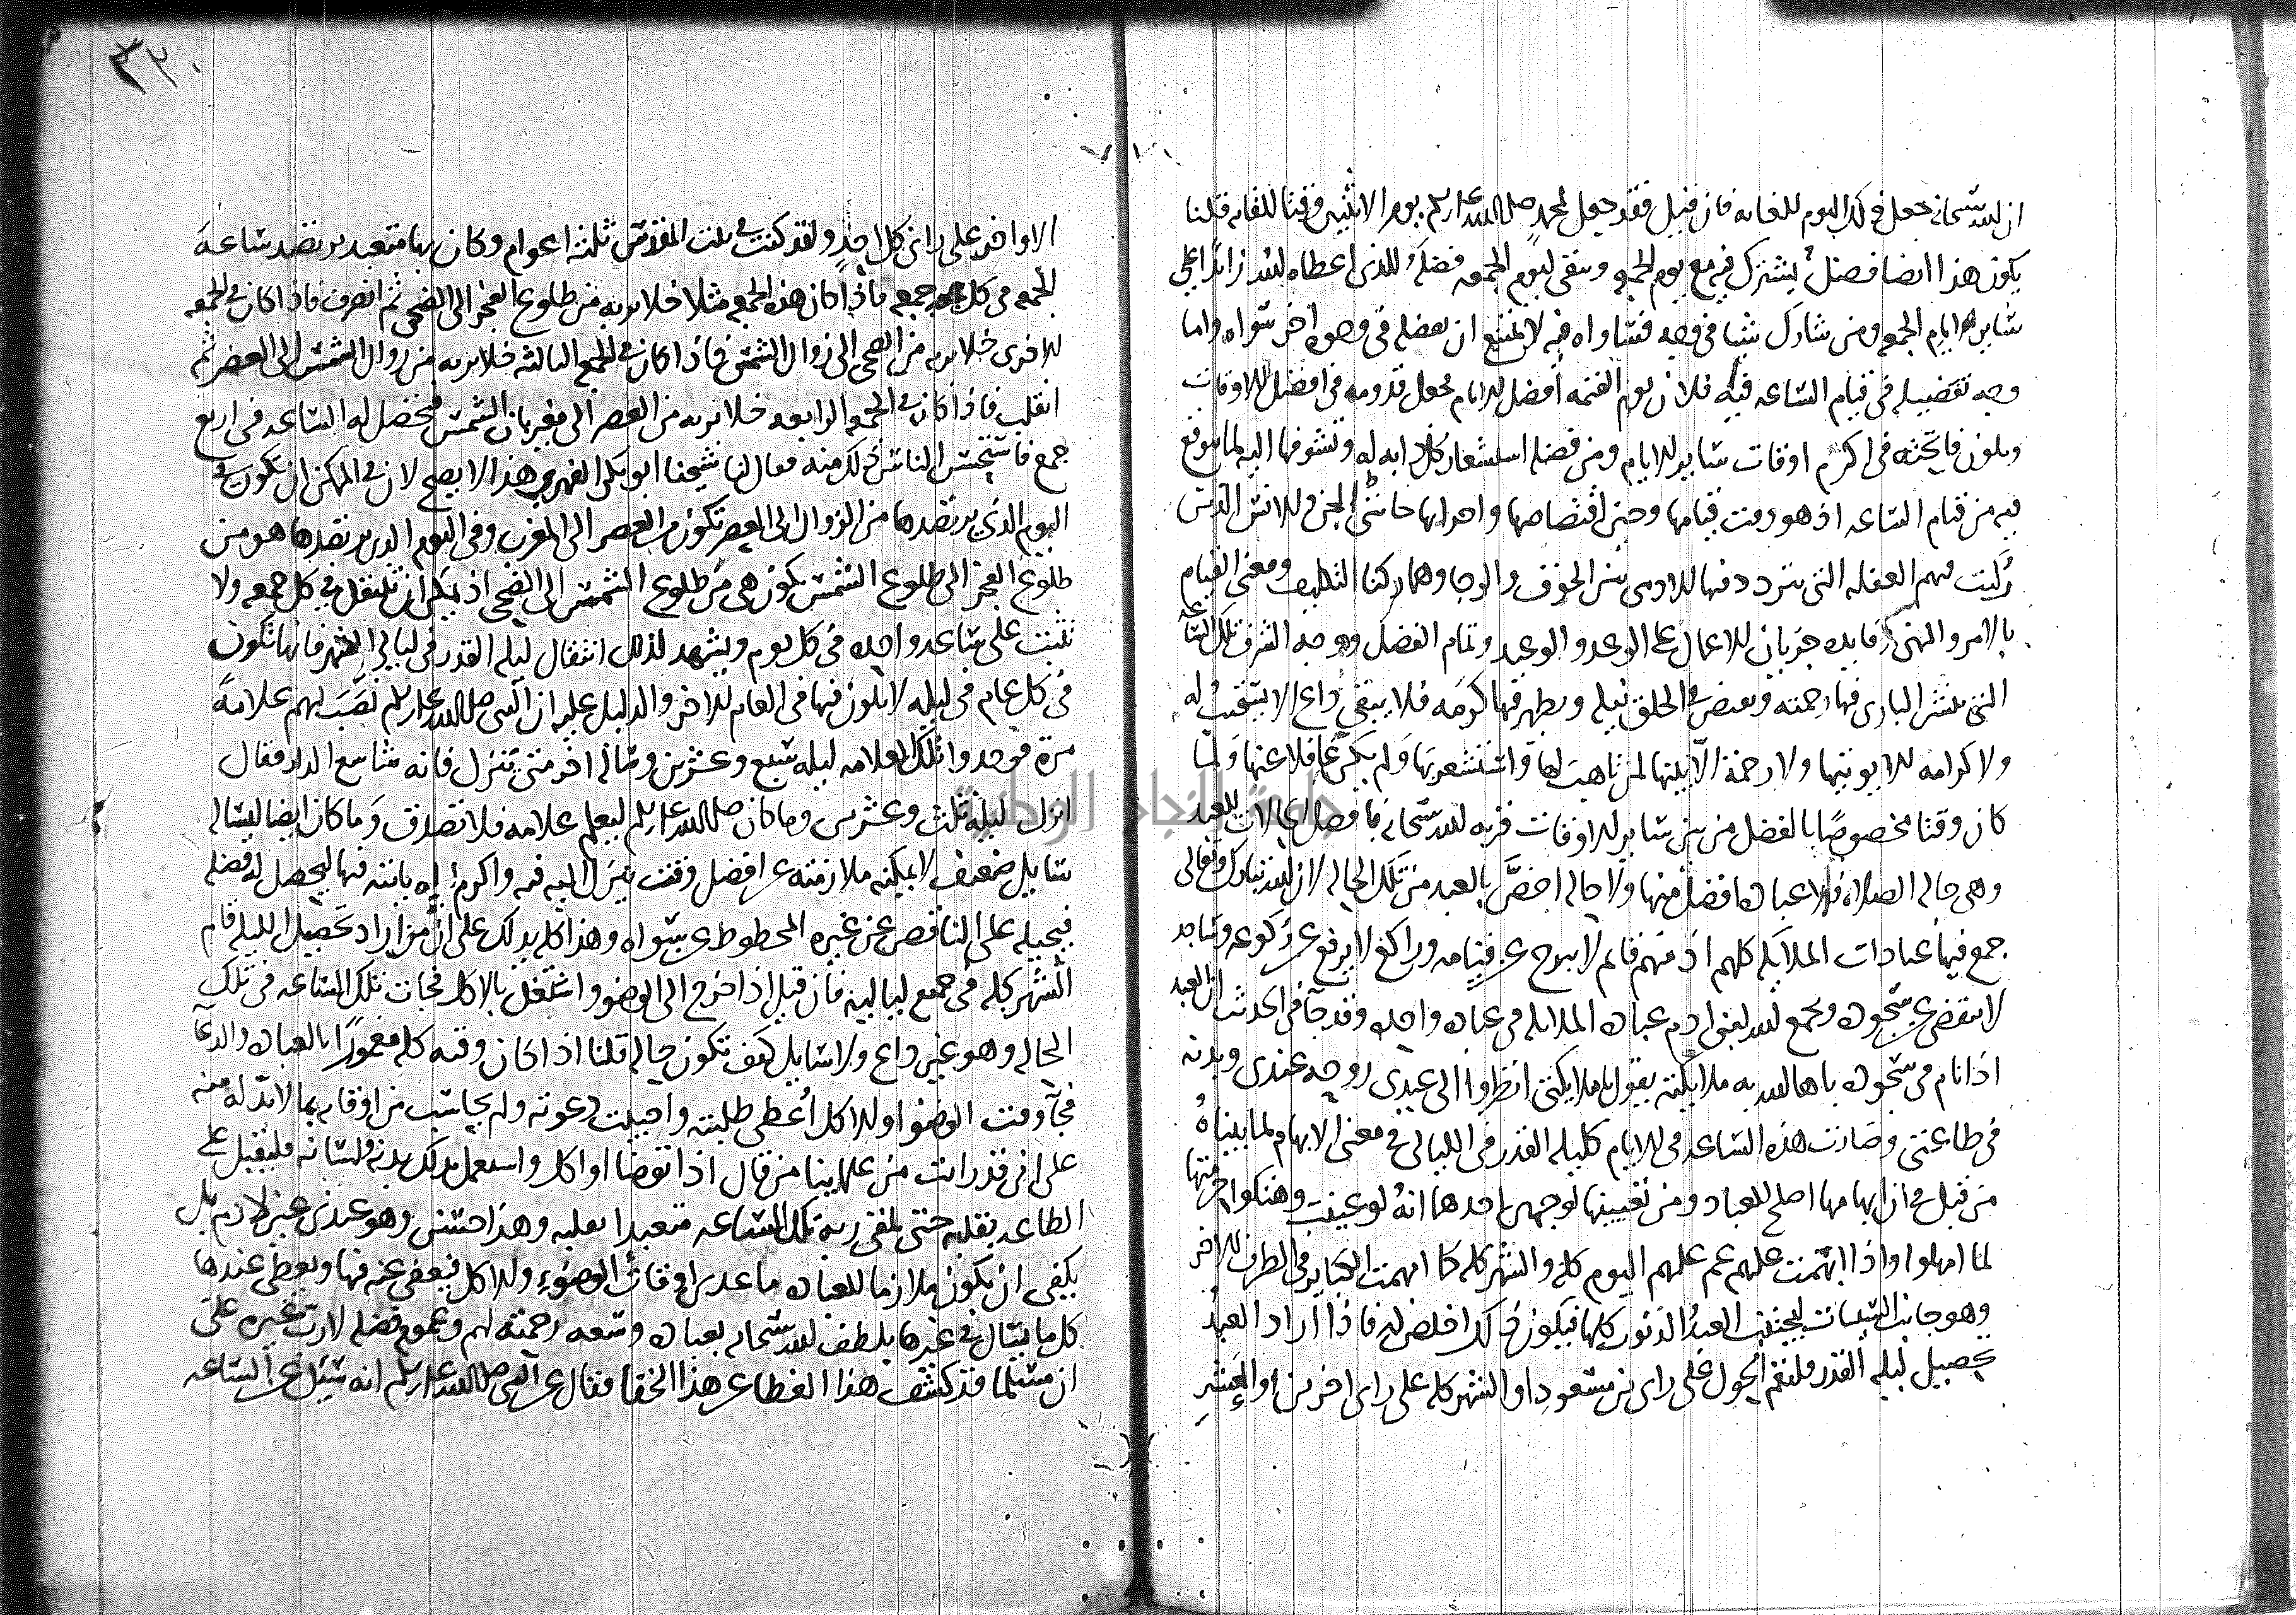 ان لله سبحانه جعل في كل اليوم للغابه فان قيل فقد جعل لمحمد صلى الله عليه وسلم يوم الاثنين وقتا للقايه قلنا
يكون هذا ايضا فضل يشترك فيه مع يوم الجمعه ويبقى ليوم الجمعه فضله الذي اعطاه الله زايدا على
ساير ايام الجمعه ومن شارك شيا في وجه فساواه فيه لا يمتنع ان يفضله في وجوه اخر سواه واما
وجه تفضيله في قيام الساعه فيه فلان يوم القيمه افضل الايام فجعل قدومه في افضل الاوقات
ويكون فاتحته في اكرم اوقات ساير الايام ومن فضله استشعار كل دابه له وتشوفها اليه لما يتوقع
فيه من قيام الساعه اذ هو وقت قيامها وحين اقتصاصها وجزايها حاشى الجن والانس الذين
ركبت فيهم الغفله التي يتردد فيها الادمي بين الخوف والرجا وهما ركنا التكليف ومعنى القيام
بالامر والنهي وفايده جريان الاعمال على الوعد والوعيد وتمام الفضل ووجه الشرف تلك الساعه
التي ينشر الباري فيها رحمته ويفيض في الخلق نيله ويظهر فيها كرمه فلا يبقى داع الا يستجيب له
ولا كرامه الا يوتيها ولا رحمة الا يبثها لمن تاهب لها واستشعر بها ولم يكن غافلا عنها ولما
كان وقتا مخصوصا بالفضل من بين ساير الاوقات قرنه الله سبحانه بافضل الحالات للعبد
وهي حاله الصلاه فلا عباده افضل منها ولا حاله اخص بالعبد من تلك الحاله لان الله تبارك وتعالى
جمع فيها عبادات الملايكه كلهم اذ منهم قايم لا يبرح عن قيامه وراكع لا يرفع عن ركوعه وساجد
لا ينقضي عن سجوده وجمع الله لبني ادم عباده الملايكه في عباده واحده وقد جا في الحديث ان العبد
اذا نام في سجوده باهى الله به ملايكته يقول يا ملايكتي انظروا الى عبدي روحه عندي وبدنه
في طاعتي وصارت هذه الساعه في الايام كليله القدر في الليالي في معنى الابهام لما بيناه
من قبل في ان ابهامها اصلح للعباد ومن تعيينها لوجهين احدهما انه لو عينت وهتكوا حرمتها
لما امهلوا واذا ابهمت عليهم عم علمهم اليوم كله والشهر كله كما ابهمت الكباير في الطرف الاخر
وهو جانب السيات ليجتنب العبد الذنوب كلها فيكون ذلك اخلص له فاذا اراد العبد
تحصيل ليله القدر فليقم الحول على راي بن مسعود او الشهر كله على راي اخرين او العشر
٣٢٠
الاواخر على راي كل احد ولقد كنت في بيت المقدس ثلثه اعوام وكان بها متعبد يرتصد ساعة
الجمعه في كل جمعه فاذا كان هذه الجمعه مثلا خلا بربه من طلوع الفجر الى الضحى ثم انصرف فاذا كان في الجمعه
الاخرى خلا بربه من الضحى الى زوال الشمس فاذا كان في الجمعه الثالثه خلا بربه من زوال الشمس الى العصر ثم
انقلب فاذا كان في الجمعه الرابعه خلا بربه من العصر الى مغربان الشمس فتحصل له الساعه في اربع
جمع فاستحسن الناس ذلك منه فقال لنا شيخنا ابو بكر الفهري هذا لا يصح لان في الممكن ان تكون في
اليوم الذي يرتصدها من الزوال الى العصر تكون من العصر الى المغرب وفي اليوم الذي يرتصدها هو من
طلوع الفجر الى طلوع الشمس تكون هي من طلوع الشمس الى الضحى اذ يمكن ان تنتقل في كل جمعه ولا
تثبت على ساعه واحده في كل يوم ويشهد لذلك انتقال ليله القدر في ليالي الشهر فانها تكون
في كل عام في ليله لا يكون فيها في العام الاخر والدليل عليه ان النبي صلى الله عليه وسلم نصب لهم علامة
مرة فوجدوا تلك العلامه ليله سبع وعشرين وساله اخر متى تنزل فانه شاسع الدار فقال
انزل ليلة ثلث وعشرين وما كان صلى الله عليه وسلم ليعلم علامه فلا تصدق وما كان ايضا ليساله
سايل ضعيف لا يمكنه ملازمته عن افضل وقت ينزل اليه فيه واكرم ليله ياتيه فيها ليحصل له فضله
فيحيله على الناقص عن غيره المحطوط عن سواه وهذا كله يدلك على ان من اراد تحصيل الليله قام
الشهر كله في جميع لياليه فان قيل اذا خرج الى الوضو واشتغل بالاكل فجات تلك الساعه في تلك
الحاله وهو غير داع ولا سايل كيف تكون حاله قلنا اذا كان وقته كله معمورا بالعباده والدعا
فجا وقت الوضو او الاكل اعطي طلبته واجيبت دعوته ولم يحاسب من اوقاته بما لا بد له منه
على اني قد رايت من علماينا من قال اذا توضا او اكل واستعمل بذلك بدنه ولسانه فليقبل على
الطاعه بقلبه حتى يلقى ربه تلك الساعه متعبدا بقلبه وهذا حسن وهو عندي غير لازم بل
يكفي ان يكون ملازما للعباده ما عدى اوقات الوضوء والاكل فيعفى عنه فيها ويعطى عندها
كل ما يسال في غيرها بلطف الله سبحانه بعباده وسعه رحمته لهم وعموم فضله لا رب غيره على
ان مسلما قد كشف هذا الغطا عن هذا الخفا فقال عن النبي صلى الله عليه وسلم انه سيل عن الساعه